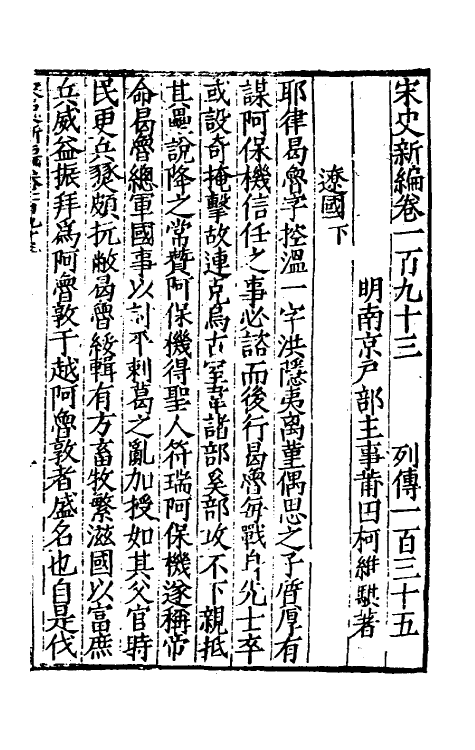 宋史新編卷一百九十三　列傳一百三十五
明南京戶部主事莆田柯維騏著
遼國下
耶律曷魯字控溫一字洪隱夷离菫偶思之子質厚有
謀阿保機信任之事必諮而後行曷魯每戰身先士卒
或設奇掩擊故連克烏古室韋諸部奚部攻不下親抵
其壘說降之常贊阿保機得聖人符瑞阿保機遂稱帝
命曷魯總軍國事以討平剌葛之亂加授如其父官時
民更兵燹頗抏敝曷魯綏輯有方畜牧繁滋國以富庶
兵威益振拜為阿魯敦于越阿魯敦者盛名也自是伐